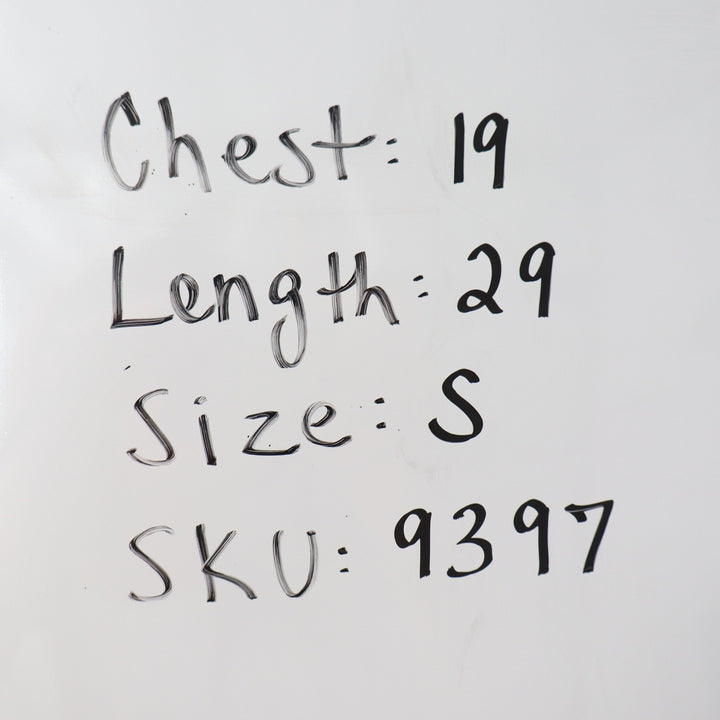 Chest: 19
Length: 29
Size: S
SKU: 9397